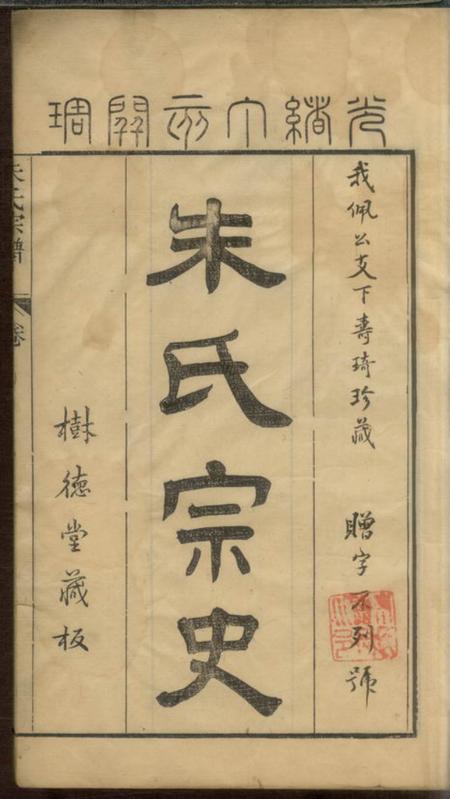 光緒丁亥開琱
我佩公支下壽琦珍藏 贈字不列號
朱氏宗史
樹德堂藏板
朱氏宗譜 卷